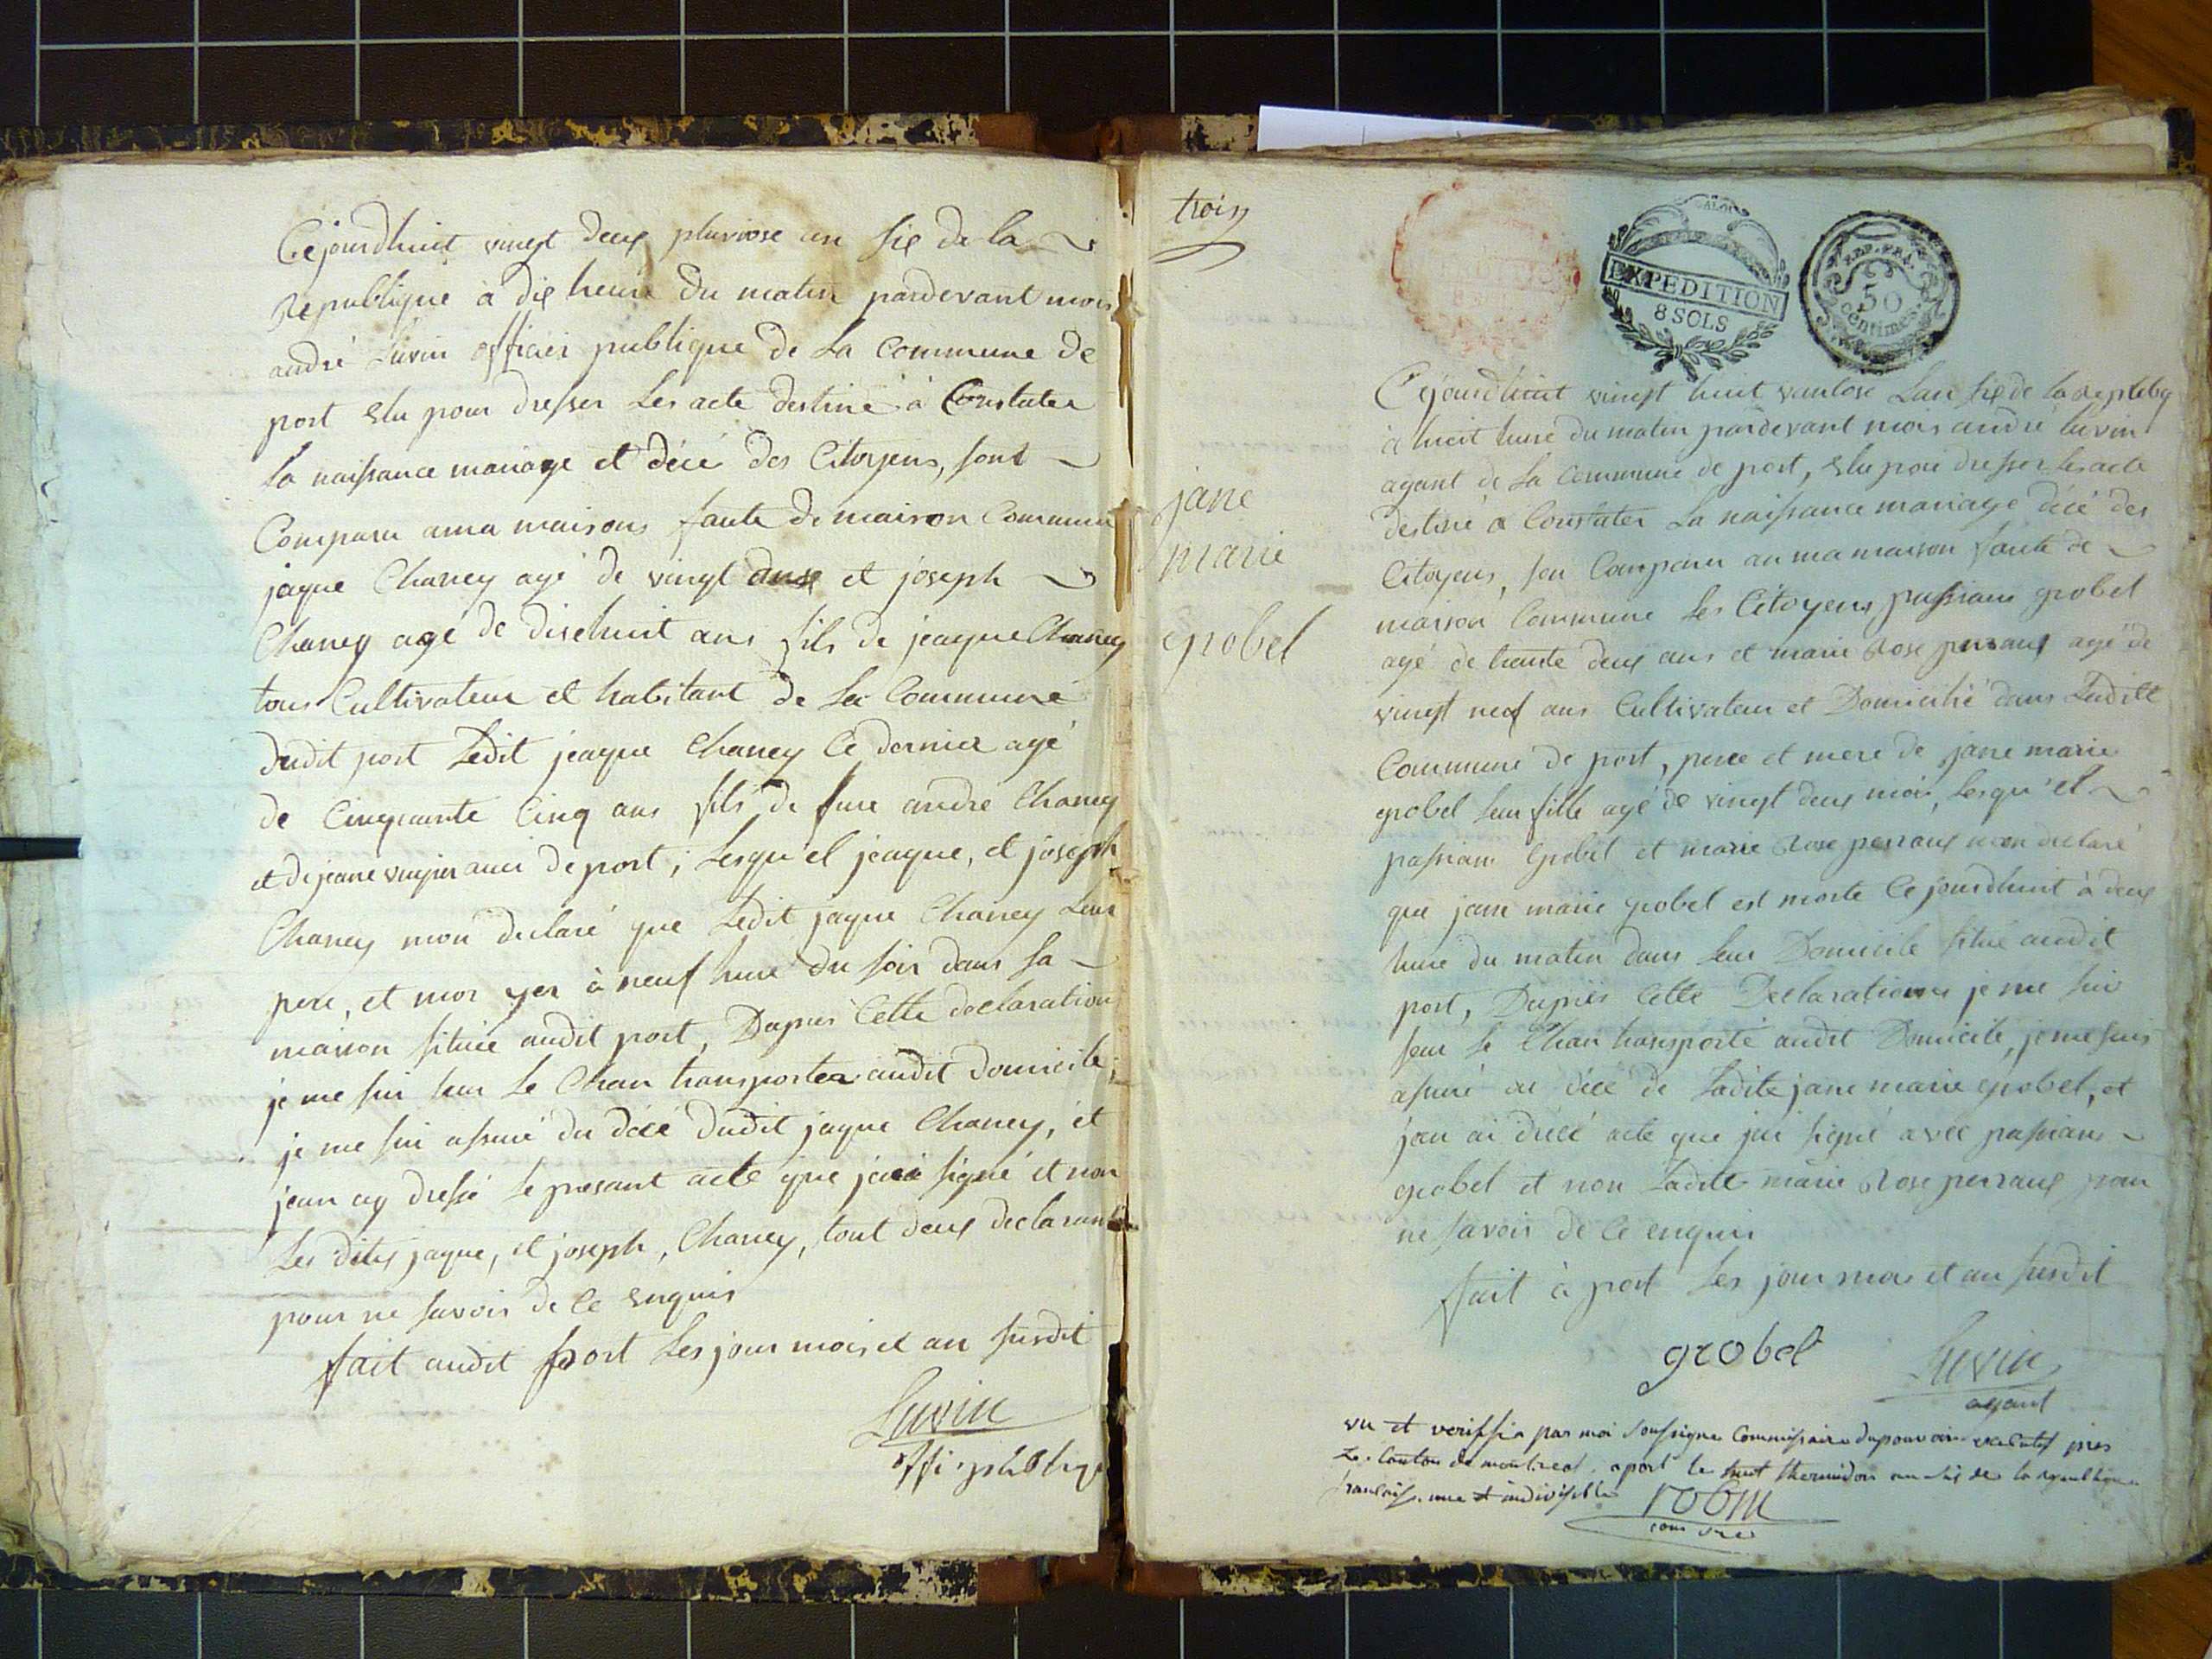 Cejourdhuit vingt deux pluviose an six de la
Republique à dix heure du matin pardevant moi
andré Luvin officier publique de la Commune de
port elu pour dresser les acte destiné à Constater
la naissance mariage et décé des Citoyens, sont
Comparu ama maisons faute de maison Commune
jaque Chaney agé de vingt ans et joseph
Chaney agé de dixehuit ans fils de jeaque Chaney
tous Cultivateur et habitant de la Commune
dudit port Ledit jeaque Chaney le dernier agé
de Cinquante Cinq ans fils de fure andre Chaney
et de jeane de port, Lesqu'el jeaque, et joseph
Chaney mon declaré que Ledit jaque Chaney Leur
pere, et mor yer à neuf hure du soir dans sa
maison située audit port, Dapres Cette declaration
je me sui sur le Chan transporter audit domicile,
je me sui assuré du décé dudit jaque Chaney, et
jean ay dressé le presant acte que jai signé et non
Les dits jaque, et joseph, Chaney, tout deux declarant
pour ne savoir de Ce enquis
fait audit port Les jour mois et an susdit
Luvin
offi. publiq
trois
EXPEDITION
8 SOLS
REP. FRA.
50
centimes
jane
marie
grobel
Cejourdhuit vingt huit vantose Lan six de la
à huit hure du matin pardevant moi andré luvin
agant de la Commune de port, elu pour dresser les acte
destiné a Constater La naissance mariage décé des
Citoyens, son Comparu an ma maison faute de
maison Commune Les Citoyens passians grobel
agé de trente deux ans et marie Rose perraux agé de
vingt neuf ans Cultivateur et Domicilié dans Ladite
Commune de port, pere et mere de jane marie
grobel leur fille agé de vingt deux moi, Lesqu'el
passians grobel et marie Rose perraux mon declaré
que jane marie grobel est morte Cejourdhuit à deux
hure du matin dans leur Domicile situé audit
port, Dapres Cette Declarations je me sui
seur le Chan transporté audit Domicile, je me suis
assuré du décé de Ladite jane marie grobel, et
jan ai acte que jai signé avec passians
grobel et non Ladite marie Rose perraux pour
ne savoir de Ce enquis
fait à port Les jour moi et an susdit
grobel
Luvin
agant
vu et veriffié par moi soussigne Commissaire dupouvoir près
Le Canton de montreal. a port le huit thermidor an six de la
francaise une et indivisible
robin